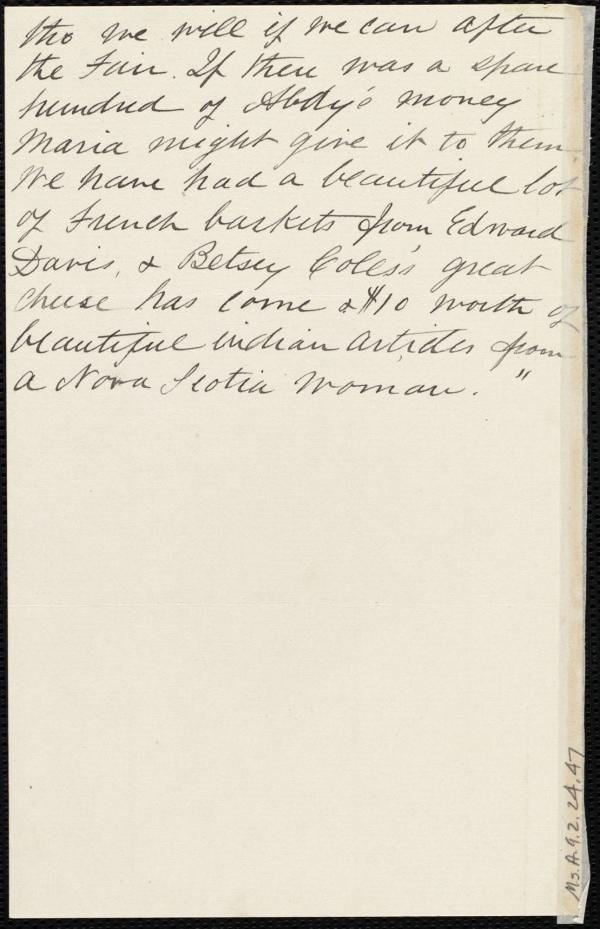 tho we will if we can after
the Fair. If there was a spare
hundred of Abdy's money
Maria might give it to them
We have had a beautiful lot
of French baskets from Edward
Davis, & Betsey Coles's great
cheese has come & $10 worth of
beautiful indian articles from
a Nova Scotia woman."
Ms.A.9.2.24.47